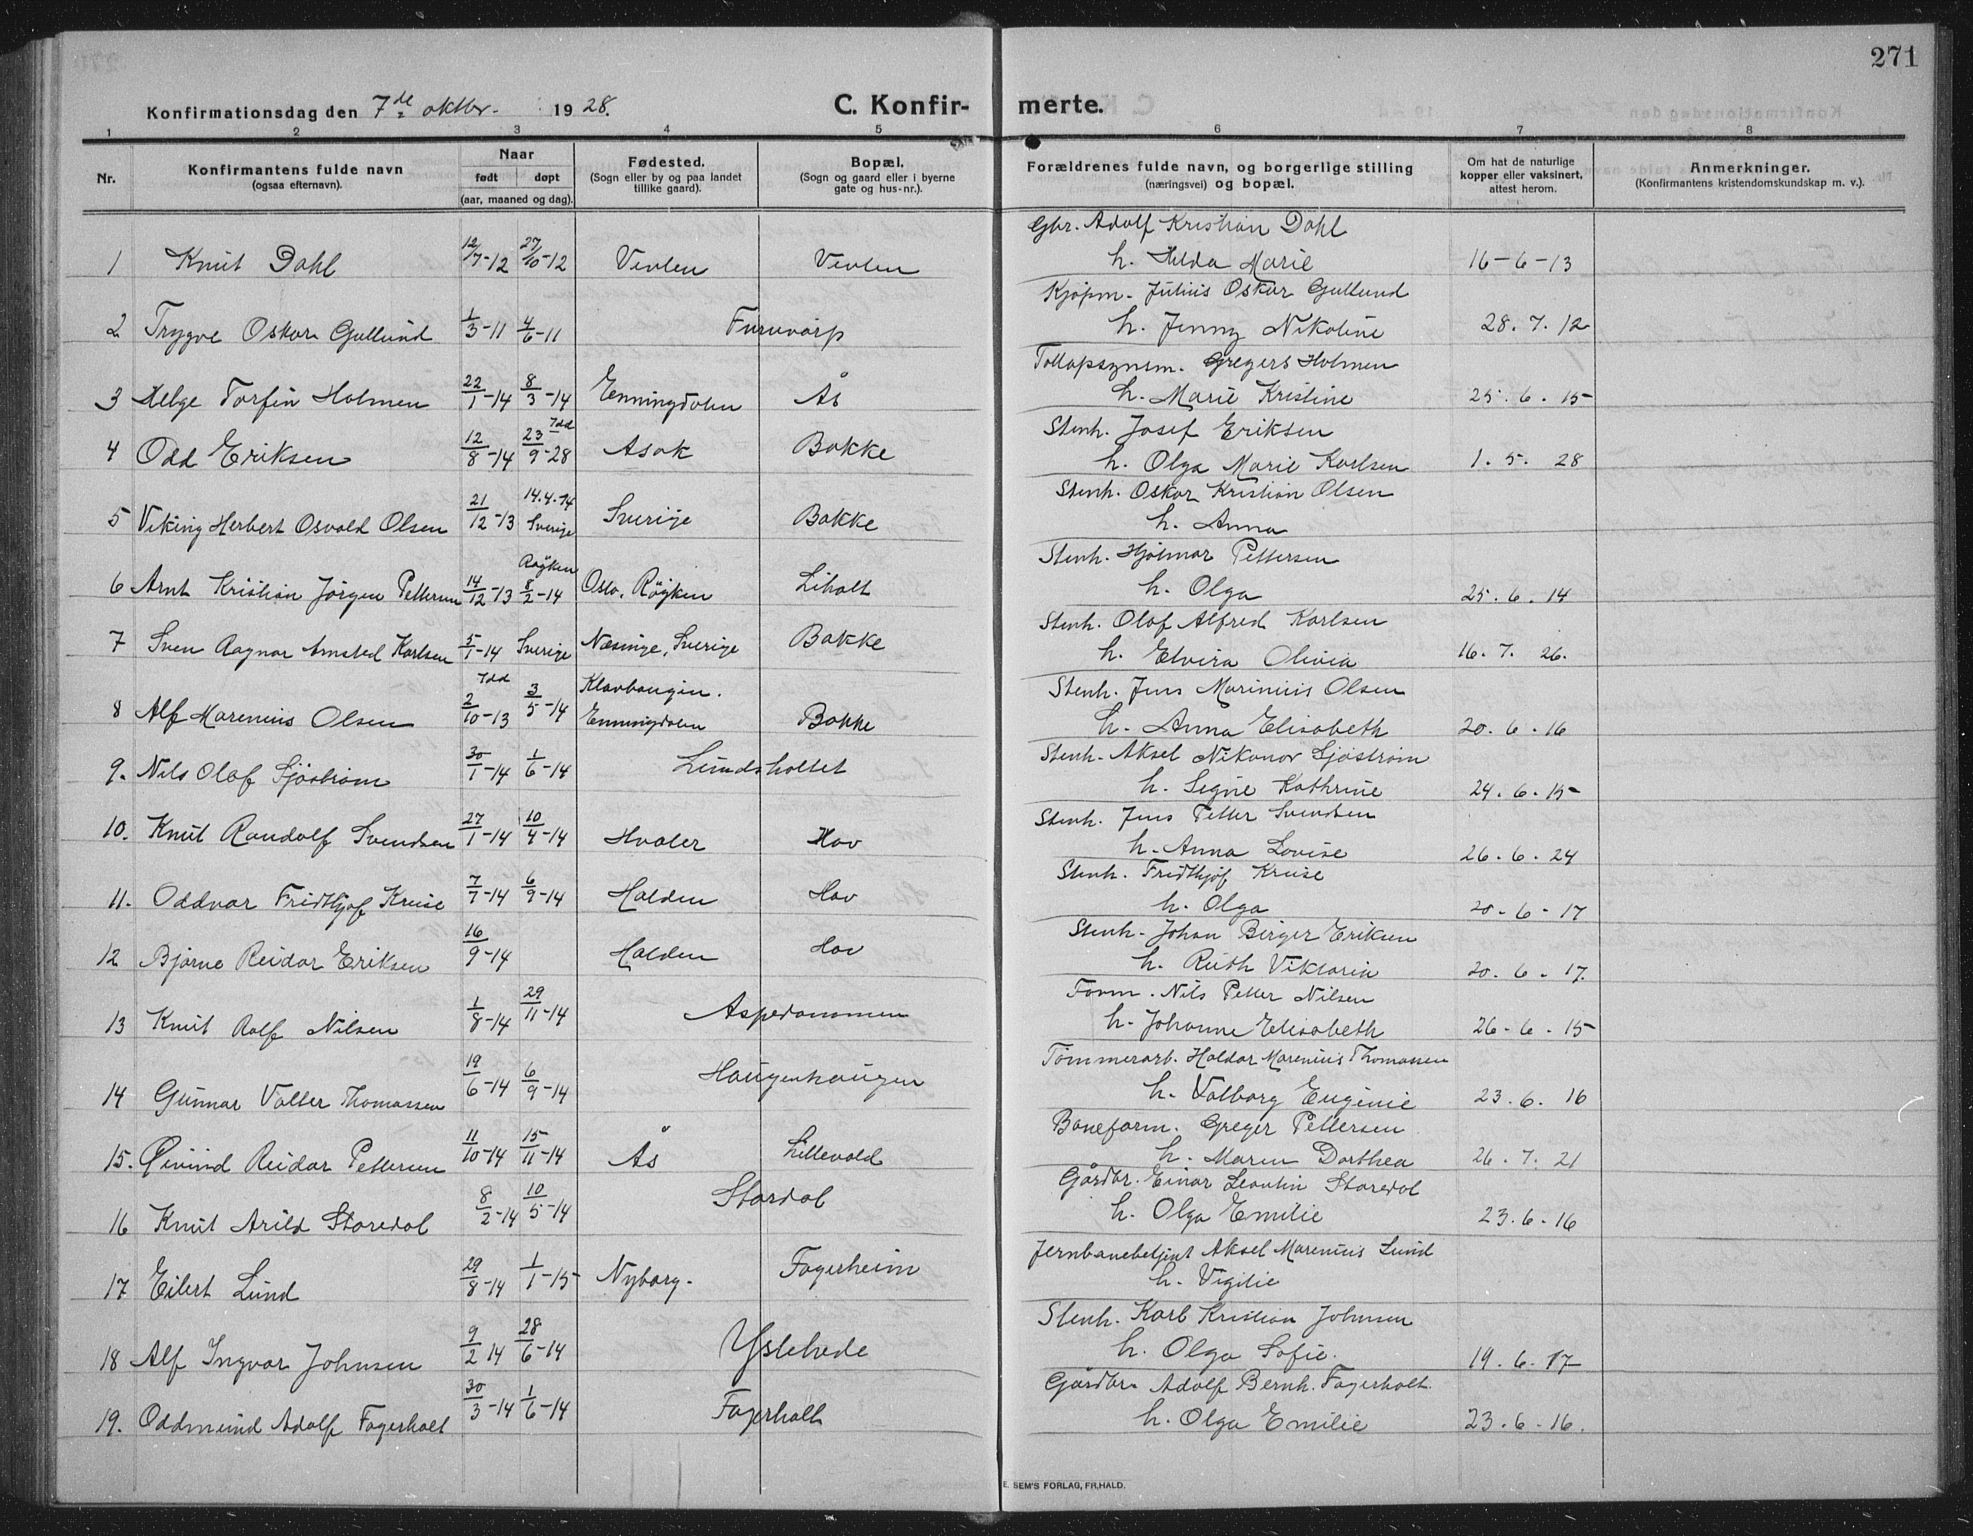 271
Konfirmationsdag den 7de oktbr. 1928.
C. Konfir- merte.
1 2 3 4 5 6 7 8
Nr.
Konfirmantens fulde navn
(ogsaa efternavn).
Naar
født døpt
(aar, maaned og dag).
Fødested.
(Sogn eller by og paa landet
tillike gaard).
Bopæl.
(Sogn og gaard eller i byerne
gate og hus-nr.).
Forældrenes fulde navn, og borgerlige stilling
(næringsvei) og bopæl.
Om hat de naturlige
kopper eller vaksinert,
attest herom.
Anmerkninger.
(Konfirmantens kristendomskundskap m. v.).
Gbr. Adolf Kristian Dahl
1 Knut Dahl 12/7-12 27/10-12 Vevlen Vevlen h. Hilda Marie 16-6-13
Kjøpm. Julius Oskar Gullund
2 Trygve Oskar Gullund 1/3-11 4/6-11 Furuvarp h. Jenny Nikoline 28. 7. 12
Tollopsynsm. Gregers Holmen
3 Helge Torfin Holmen 22/1-14 8/3-14 Enningdalen Ås h. Marie Kristine 25. 6. 15
Stenh. Josef Eriksen
4 Odd Eriksen 12/8-14 23/9-28 Idd Asak Bakke h. Olga Marie Karlsen 1. 5. 28
Stenh. Oskar Kristian Olsen
5 Viking Herbert Osvald Olsen 21/12-13 14.4.14 Sverige Sverige Bakke h. Anna
Stenh. Hjalmar Pettersen
6 Arnt Kristian Jørgen Pettersen 14/12-13 Røyken 8/2-14 Oslo, Røyken Liholt h. Olga 25. 6. 14
Stenh. Olaf Alfred Karlsen
7 Sven Ragnar Arnsted Karlsen 5/1-14 Sverige Næsinge, Sverige Bakke h. Elvira Olivia 16. 7. 26.
Stenh. Jens Marinius Olsen
8 Alf Marenius Olsen Idd 2/10-13 3/5-14 Klavhaugen. Enningdalen Bakke h. Anna Elisabeth 20. 6. 16
Stenh. Aksel Nikanor Sjøstrøm
9. Nils Olaf Sjøstrøm 30/1-14 1/6-14 Lundsholtet h. Signe Kathrine 24. 6. 15
Stenh. Jens Petter Svendsen
10. Knut Randolf Svendsen 27/1-14 10/4-14 Hvaler Hov h. Anna Lovise 26. 6. 24
Stenh. Fridthjof Kruse
11. Oddvar Fridthjof Kruse 7/7-14 6/9-14 Halden Hov h. Olga 20. 6 - 17
Stenh. Johan Birger Eriksen
12 Bjarne Reidar Eriksen 16/9-14 Halden Hov h. Ruth Viktoria 20. 6. 17.
Form. Nils Petter Nilsen
13 Knut Rolf Nilsen 1/8-14 29/11-14 Aspedammen h. Johanne Elisabeth 26-6. 15
Tømmerarb. Haldor Marenius Thomassen
14 Gunnar Valter Thomassen 19/6-14 6/9-14 Haugenhaugen h. Valborg Eugenie 23. 6. 16
Baneform. Greger Pettersen
15. Øivind Reidar Pettersen 11/10-14 15/11-14 Ås Lillevold h. Maren Dorthea 26. 7. 21
Gårdbr. Einar Leontin Storedal
16 Knut Arild Storedal 8/2-14 10/5-14 Stordal h. Olga Emilie 23. 6. 16
Jernbanebetjent Aksel Marenius Lund
17 Eilert Lund 29/8-14 1/1-15 Nyborg. Fagerheim h. Vigilie
Stenh. Karl Kristian Johnsen
18 Alf Ingvar Johnsen 9/2 14 28/6-14 Yslehede h. Olga Sofie. 19. 6. 17
Gårdbr. Adolf Bernh. Fagerholt.
19. Oddmund Adolf Fagerholt 30/3-14 1/6-14 Fagerholt h. Olga Emilie 23. 6 - 16.
E. SEM'S FORLAG, FR.HALD.